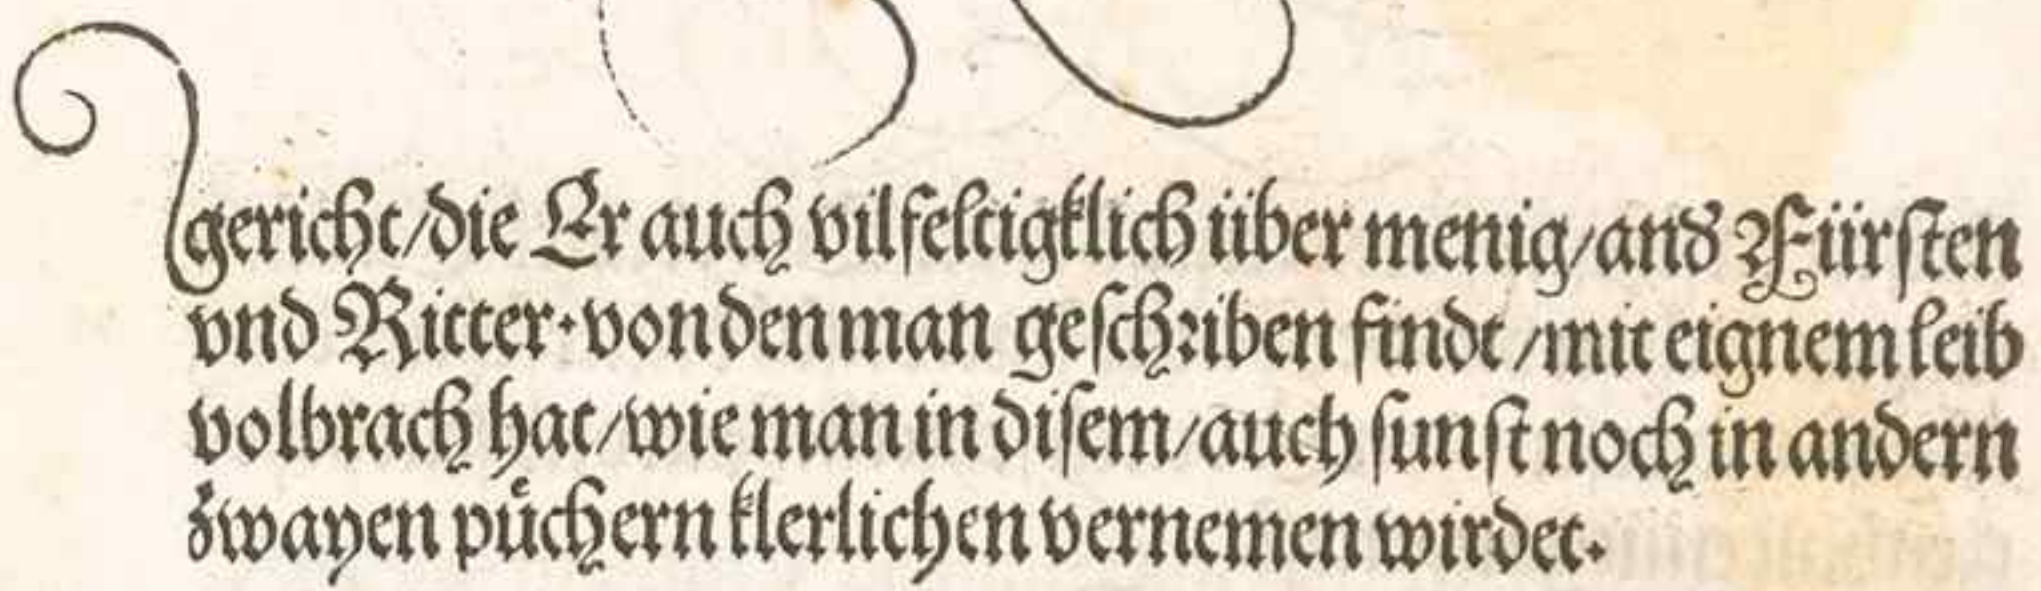 gericht/die Er auch vilfeltigklich über menig/and Fürſten
vnd Ritter·von den man geſchꝛiben findt/mit eignem leib
volbrach hat/wie man in diſem/auch ſunſt noch in andern
zwayen puͤchern klerlichen vernemen wirdet·